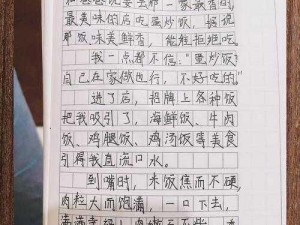 最美味的店吃蛋炒饭，据说
那饭味美鲜香，能推拒绝吃。
我一点都不信，“蛋炒饭
自己在家做也行，不好吃的”
进了店，招牌上各种饭
把我吸引了，海鲜饭、牛肉
饭、鸡腿饭、鸡汤饭等美食
引得我直流口水。
到嘴时，米饭焦而不硬，
肉粒大而饱满，一口下去，